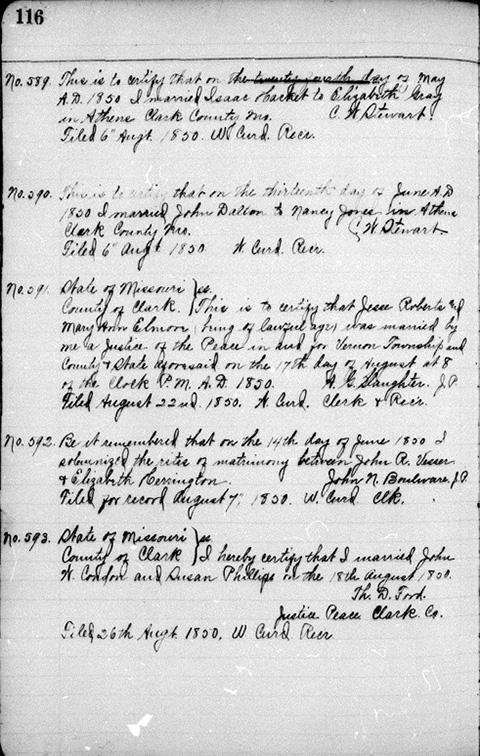 116
No. 589. This is to certify that on the twenty ninth day of May
A.D. 1850 I married Isaac Hacket to Elizabeth Gray
in Athens Clark County Mo. C. W Stewart
Filed 6" Augt. 1850. W. Curd. Recr.
No. 590. This is to certify that on the thirteenth day of June A.D
1850 I married John Dalton to Nancy Jones in Athens
Clark County Mo. C W Stewart
Filed 6" Augt 1850. W. Curd. Recr.
No. 591. State of Missouri } ss.
County of Clark. } This is to certify that Jesse Roberts and
Mary Ann Elmoor (being of lawful age) was married by
me a Justice of the Peace in and for Vernon Township and
County & State aforesaid on the 17th day of August at 8
of the Clock P.M. A.D. 1850. A. G. Slaughter. J.P.
Filed August 22nd. 1850. W. Curd. Clerk & Recr.
No. 592. Be it remembered that on the 14th day of June 1850 I
solemnized the rites of matrimony between John R. Vesser
& Elizabeth Herrington. John N. Boulware. J.P.
Filed for record August 7", 1850. W. Curd Clk.
No. 593. State of Missouri } ss.
County of Clark } I hereby certify that I married John
W. Condon and Susan Phillips on the 18th August 1850.
Th. D. Ford.
Justice Peace Clark Co.
Filed 26th Augt 1850, W Curd Recr